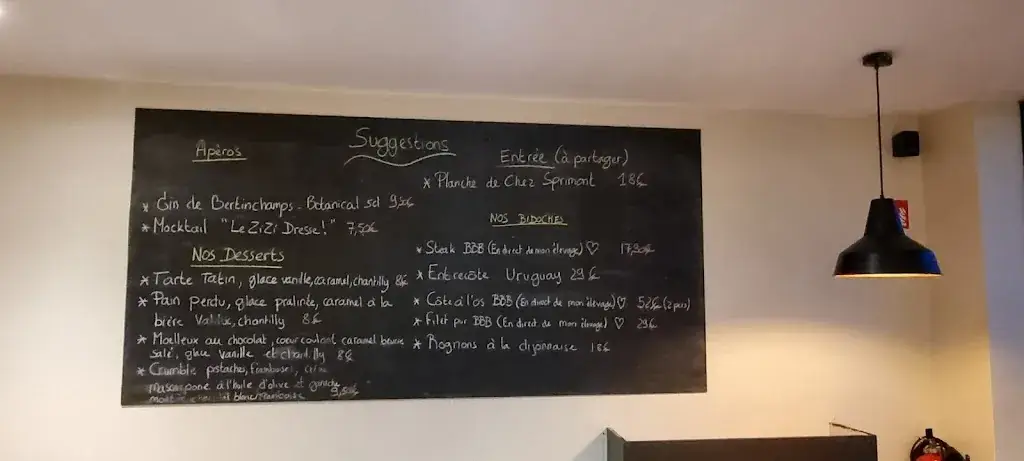 Suggestions
Apéros
* Gin de Bertinchamps - Botanical 5cl 9,50€
* Mocktail "Le ZiZi Dresse!" 7,50€
Nos Desserts
* Tarte Tatin, glace vanille, caramel, chantilly 8€
* Pain perdu, glace praliné, caramel à la
bière Valduc, chantilly 8€
* Moelleux au chocolat, coeur coulant caramel beurre
salé, glace vanille et chantilly 8€
* Crumble pistaches, framboises, crème
mascarpone à l'huile d'olive et ganache
chocolat blanc/framboise 9,50€
Entrée (à partager)
* Planche de Chez Sprimont 18€
Nos Bidoches
* Steak BBB (En direct de mon élevage) ♡ 17,90€
* Entrecôte Uruguay 29€
* Côte à l'os BBB (En direct de mon élevage) ♡ 52€ (2 pers)
* Filet pur BBB (En direct de mon élevage) ♡ 29€
* Rognons à la dijonnaise 18€